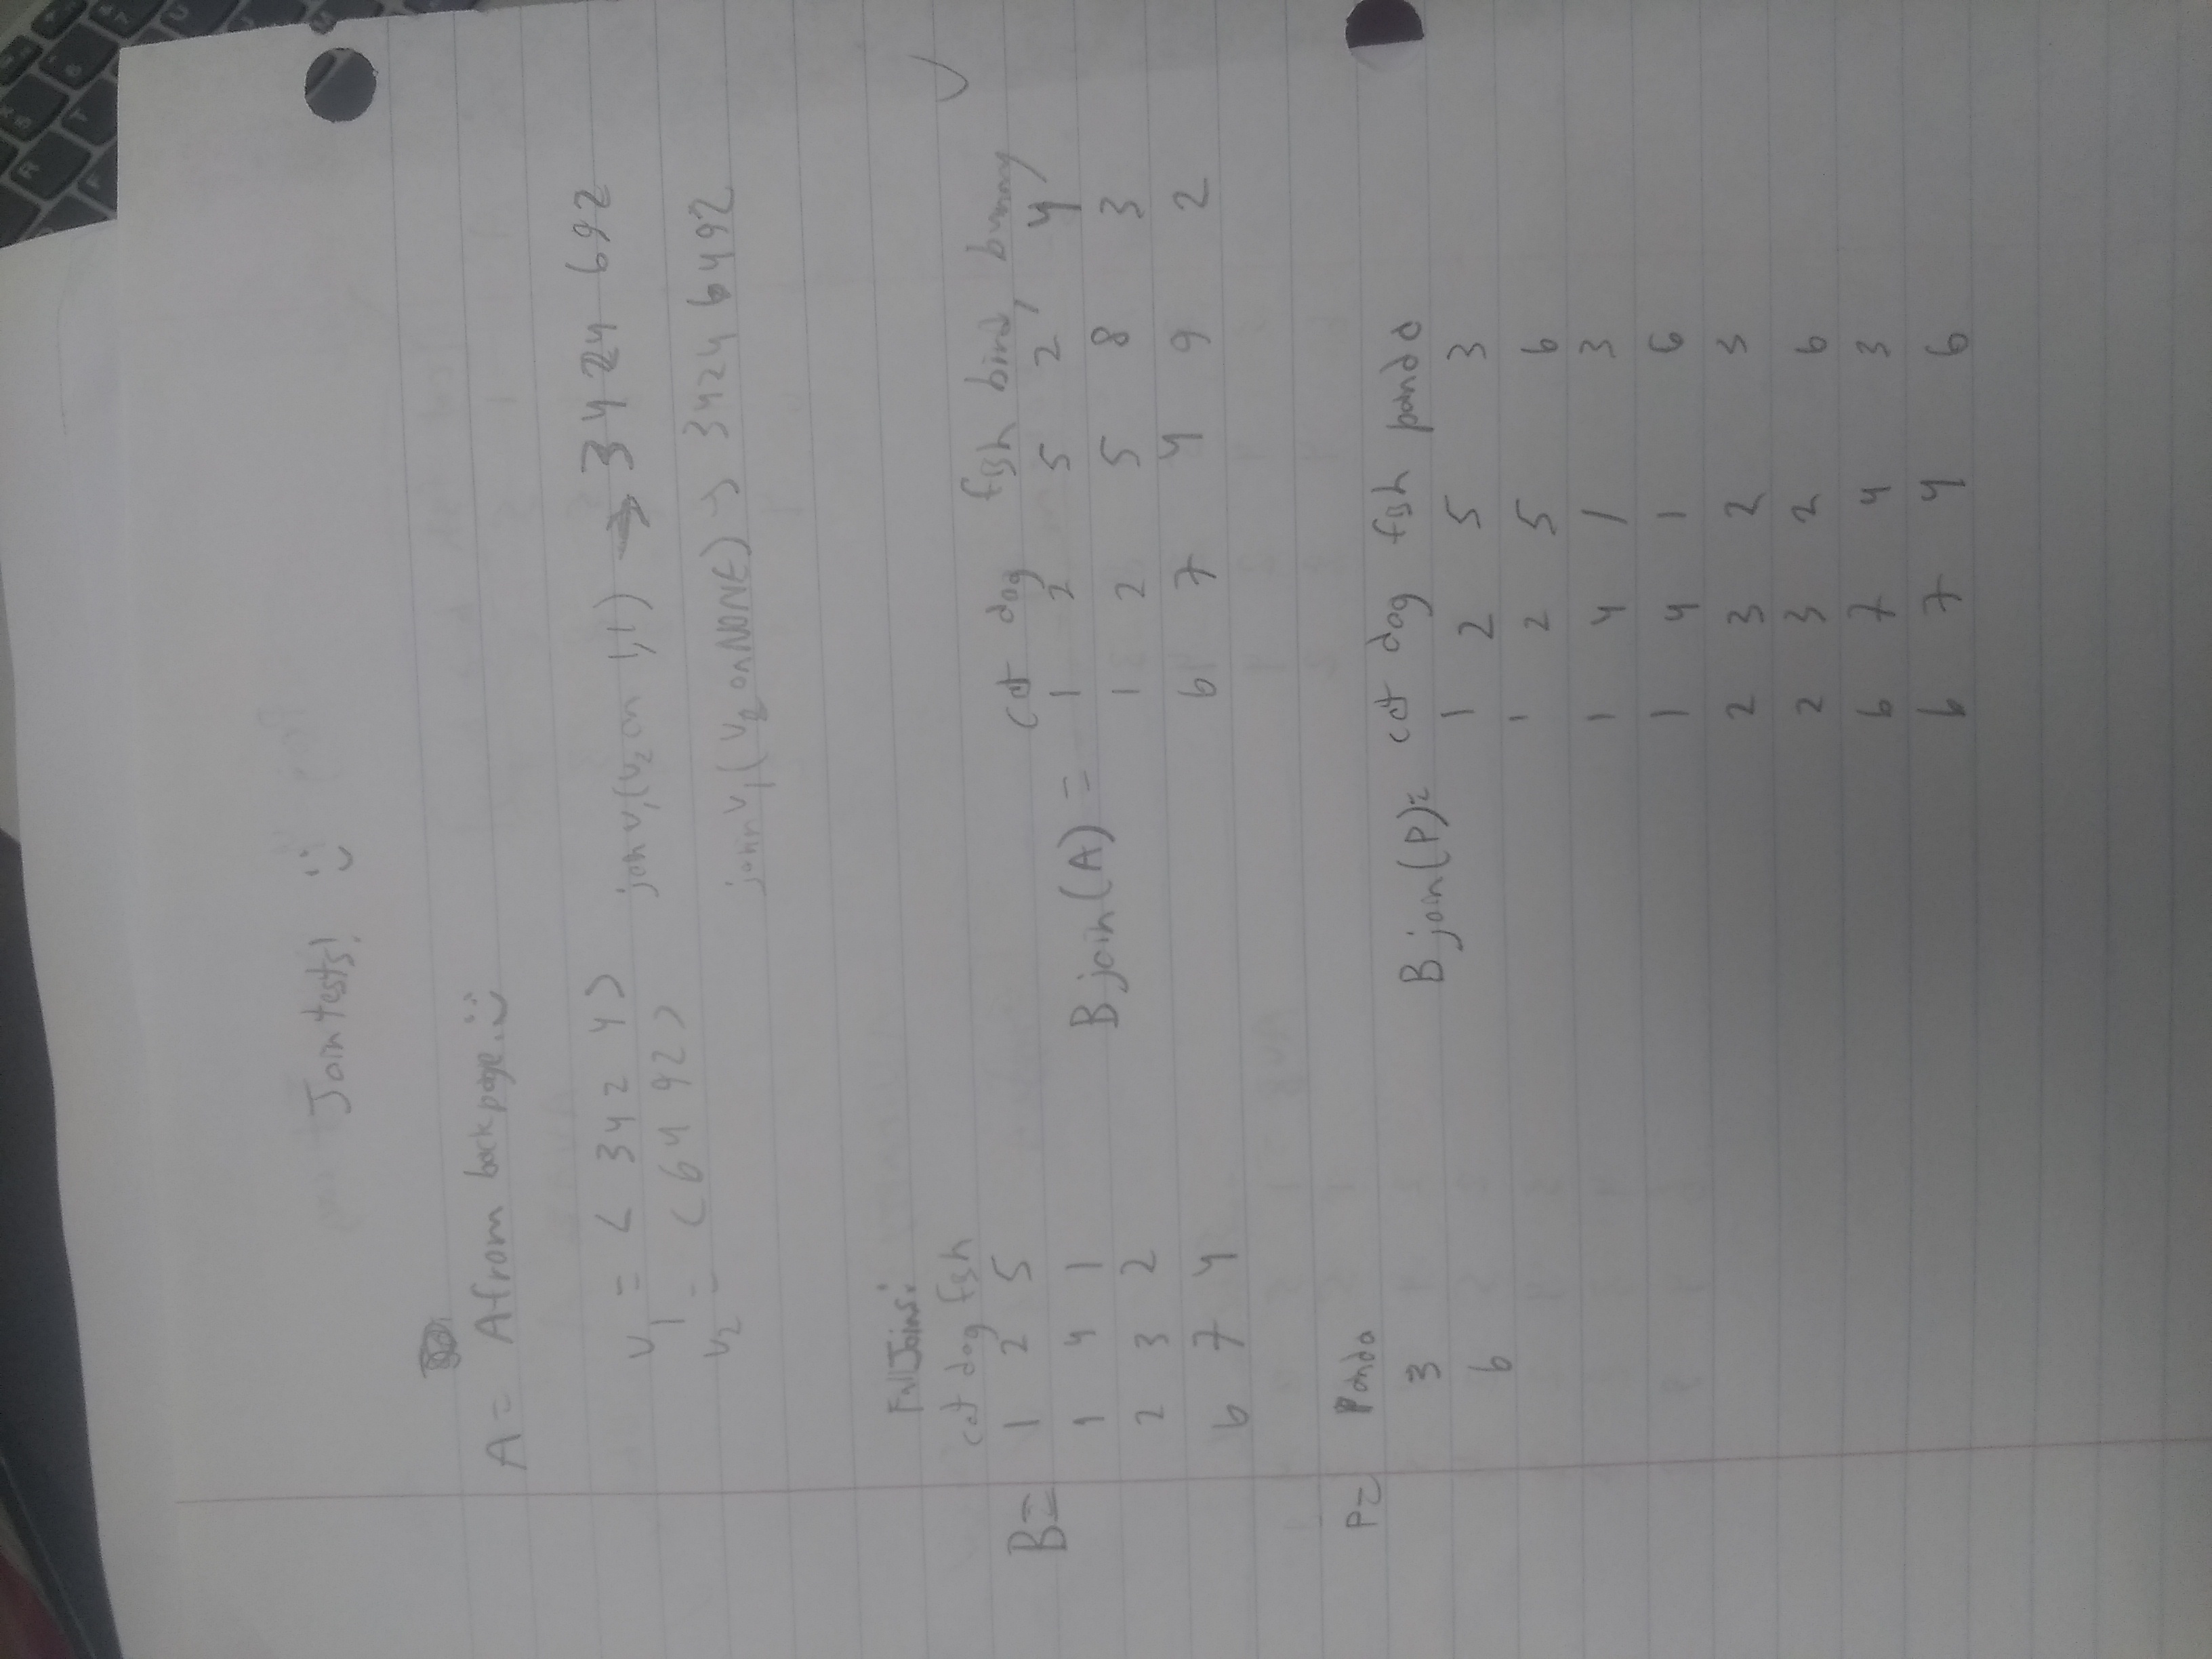 Join tests! :)
A = A from back page. :)
v1 = < 3 4 2 4 > join v1(v2 on 1,1) → 3 4 2 4 6 9 2
v2 = < 6 4 9 2 > join v1(v2 on NONE) → 3 4 2 4 6 4 9 2
Full Joins:
cat dog fish
B = 1 2 5
1 4 1
2 3 2
6 7 4
B join(A) = cat dog fish bird bunny
1 2 5 2 4
1 2 5 8 3
6 7 4 9 2
P = Panda
3
6
B join(P) = cat dog fish panda
1 2 5 3
1 2 5 6
1 4 1 3
1 4 1 6
2 3 2 3
2 3 2 6
6 7 4 3
6 7 4 6